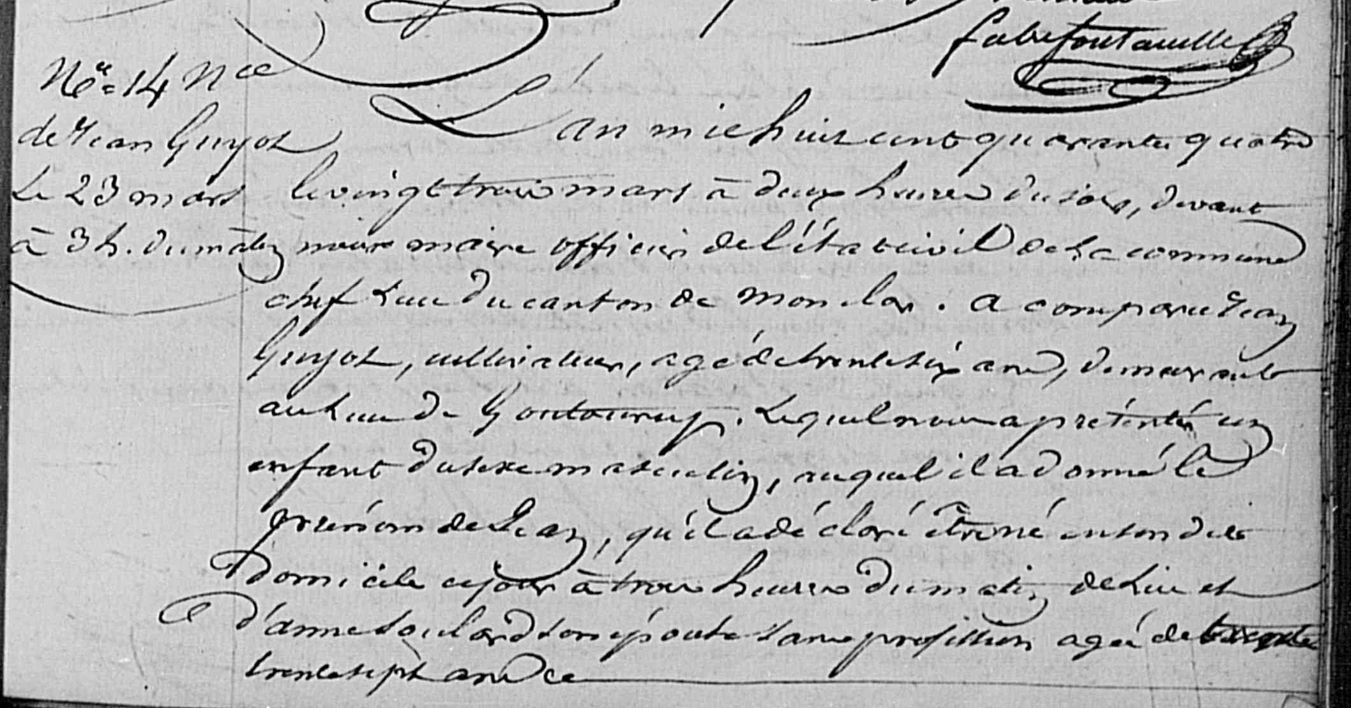 fabrefontanille
N° 14 Nce
de Jean Guyot
Le 23 mars
à 3 h. du matin
L'an mil huit cent quarante quatre
le vingt trois mars à deux heures du soir, devant
nous maire officier de l'état civil de la commune
chef lieu du canton de Monclar. a comparu Jean
Guyot, cultivateur, agé de trente six ans, demeurant
au lieu de . Lequel nous a présenté un
enfant du sexe masculin, auquel il a donné le
prénom de Jean, qu'il a déclaré être né en son dit
domicile ce jour à trois heures du matin de lui et
d'anne son épouse sans profession agée de
trente sept ans ce